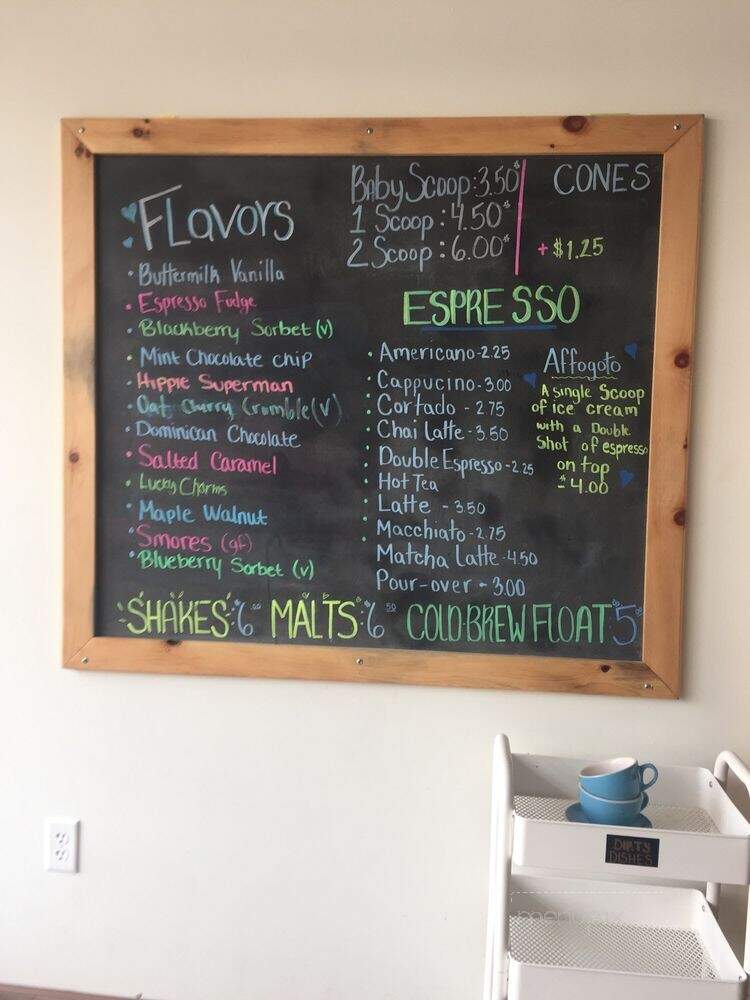 FLavors
• Buttermilk Vanilla
• Espresso Fudge
• Blackberry Sorbet (v)
• Mint Chocolate chip
• Hippie Superman
• Oat Cherry Crumble (v)
• Dominican Chocolate
• Salted Caramel
• Lucky Charms
• Maple Walnut
• Smores (gf)
• Blueberry Sorbet (v)
Baby Scoop: 3.50*
1 Scoop: 4.50*
2 Scoop: 6.00*
CONES
+ $1.25
ESPRESSO
• Americano - 2.25
• Cappucino - 3.00
• Cortado - 2.75
• Chai Latte - 3.50
• Double Espresso - 2.25
• Hot Tea
• Latte - 3.50
• Macchiato - 2.75
Matcha Latte - 4.50
Pour-over - 3.00
Affogato
A single Scoop
of ice cream
with a Double
Shot of espresso
on top
- 4.00
SHAKES: 6.00 MALTS: 6.50 COLD BREW FLOAT 5
DIRTY
DISHES